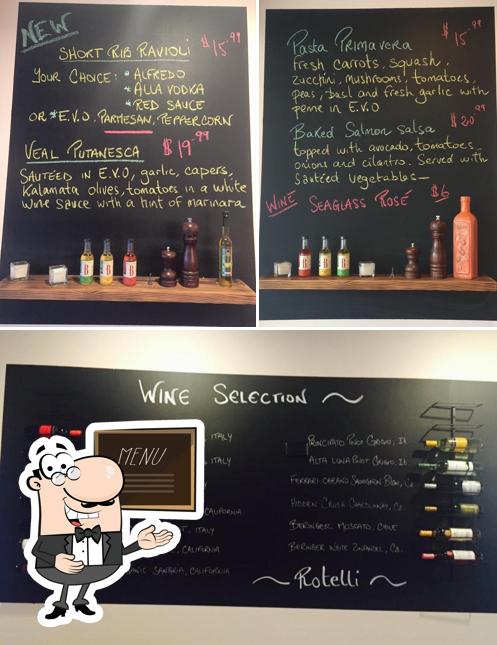 NEW
SHORT RIB RAVIOLI $15.99
YOUR CHOICE: * ALFREDO
* ALLA VODKA
* RED SAUCE
OR * E.V.O. PARMESAN, PEPPERCORN
VEAL PUTANESCA $19.99
SAUTÉED IN E.V.O, garlic, capers,
Kalamata olives, tomatoes in a white
wine sauce with a hint of marinara
Pasta Primavera $15.99
fresh carrots, squash,
zucchini, mushrooms, tomatoes,
peas, basil and fresh garlic with
penne in E.V.O
Baked Salmon salsa $20.99
topped with avocado, tomatoes,
onions and cilantro. Served with
sautéed vegetables—
WINE SEAGLASS ROSÉ $6
WINE SELECTION
, ITALY
, ITALY
CALIFORNIA
, ITALY
, CALIFORNIA
SANGRIA, CALIFORNIA
PINOT GRIGIO, It
ALTA LUNA PINOT GRIGIO, It
FERRARI CARANO SAUVIGNON BLANC, Ca.
HIDDEN CRUSH CHARDONNAY, Ca.
BERINGER MOSCATO,
BERINGER WHITE ZINFANDEL, Ca.
Rotelli
MENU